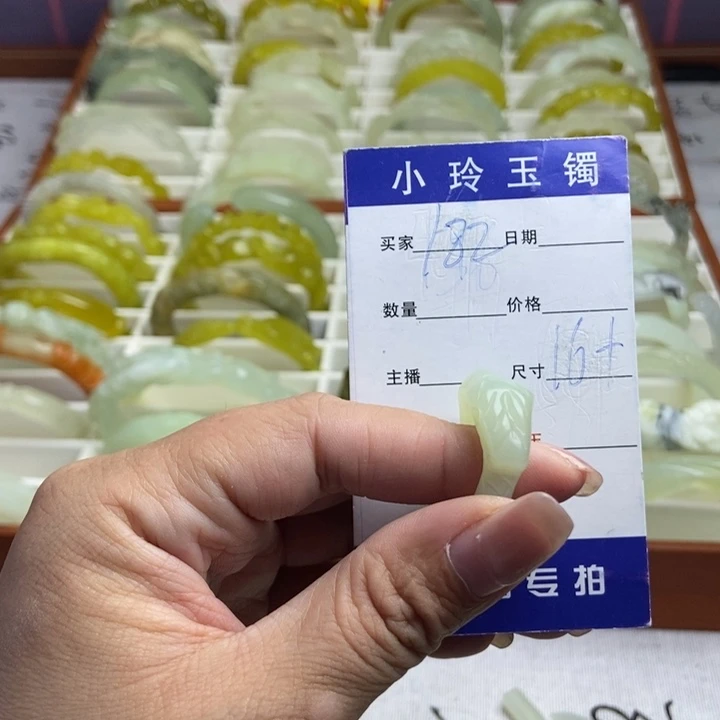 小玲玉镯
买家 日期
数量 价格
主播 尺寸 16+
专拍